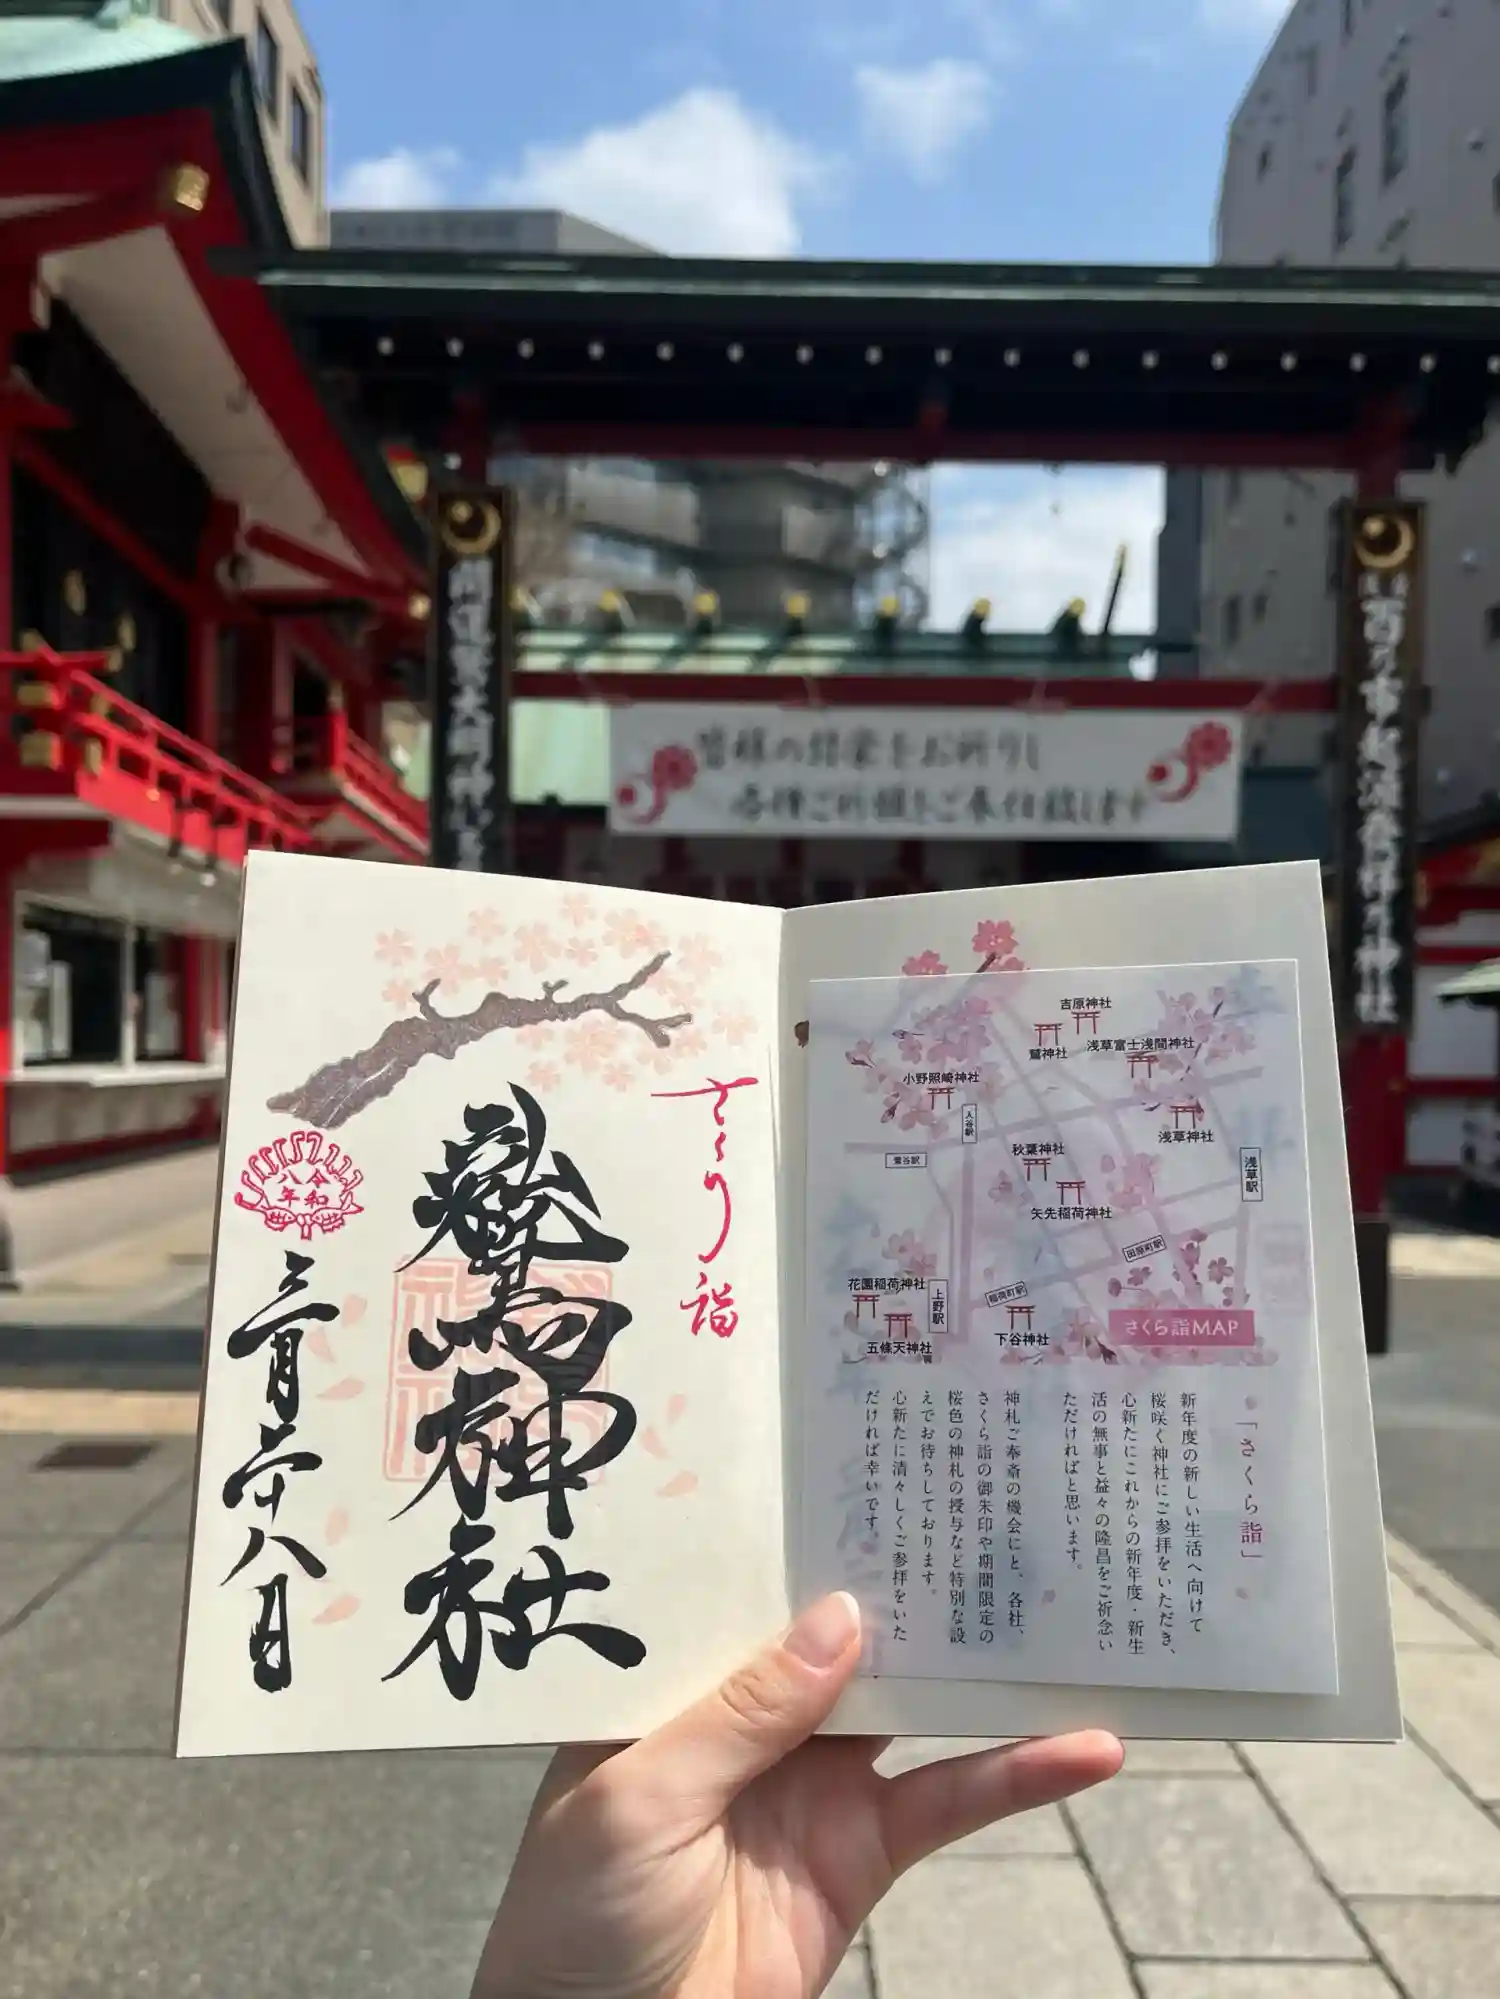 皆様の弥栄をお祈りし
各種ご祈願をご奉仕致します
さくら詣
鷲神社
令和
八年
三月二十八日
吉原神社
鷲神社
浅草富士浅間神社
小野照崎神社
入谷駅
浅草神社
秋葉神社
鶯谷駅
浅草駅
矢先稲荷神社
田原町駅
花園稲荷神社
上野駅
稲荷町駅
下谷神社
五條天神社
さくら詣MAP
「さくら詣」
新年度の新しい生活へ向けて
桜咲く神社にご参拝をいただき、
心新たにこれからの新年度・新生
活の無事と益々の隆昌をご祈念い
ただければと思います。
神札ご奉斎の機会にと、各社、
さくら詣の御朱印や期間限定の
桜色の神札の授与など特別な設
えでお待ちしております。
心新たに清々しくご参拝をいた
だければ幸いです。